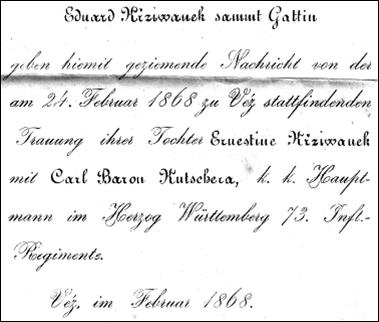 Eduard Křiwanek sammt Gattin
geben hiemit geziemende Nachricht von der
am 24. Februar 1868 zu Véz stattfindenden
Trauung ihrer Tochter Ernestine Křiwanek
mit Carl Baron Kutschera, k. k. Haupt-
mann im Herzog Württemberg 73. Inft.-
Regimente.
Véz, im Februar 1868.